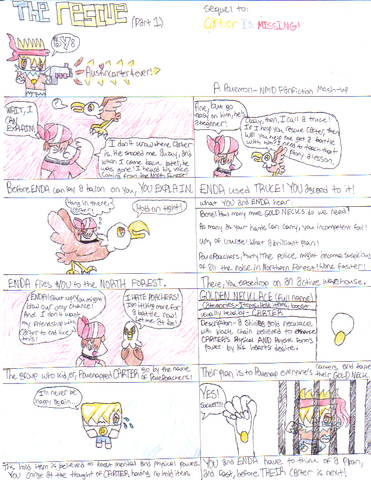 The Rescue
(Part 1)
Sequel to:
Carter Is MISSING!
Austincarter4ever!
A Pokemon-NMD Fanfiction Mash-up
WAIT, I
CAN
EXPLAIN.
I don't know where Carter
is. He shooed me away, and
when I came back later, he
was gone! I heard his voice
coming from the North Forest.
Fine, but go
easy on him, he's
a beginner.
Okay, then, I call a truce!
If I help you rescue Carter, then
will you help me get a battle
with him? I need to teach that
a lesson.
Before ENDA can lay a talon on you, YOU EXPLAIN.
ENDA used TRUCE! YOU agreed to it!
Hang in there,
Carter!
Hold on tight!
What YOU and ENDA hear
Bone! How many more GOLD NECKS do we need?
As many as your hands can carry, you incompetent fool!
Why of course! What a brilliant plan!
PokePoachers, hurry! The police might become suspicious
of all the noise in Northern Forest! Bone faster!
ENDA flies YOU to the NORTH FOREST.
There, you eavesdrop on an active warehouse.
ENDA! Shut up! You might
blow our only chance!
And I don't want
my friendship with
Carter to end like
this!
I HATE POACHERS!
I'm itching for
a battle now!
Let me at 'em!
GOLDEN NECKLACE (Full name)
usually held by - CARTER
Description - A shining gold necklace,
with black chain believed to
CARTER'S Physical AND Psychic form's
power by his heart's desire.
The group who kid, er, Pokenapped CARTER go by the name
of PokePoachers!
Their plan is to Pokenap everyone's Carters, and take
their GOLD NECK.
I'll never be
happy again...
YES!
Success!!!
This hold item is believed to boost mental and physical power.
You cringe at the thought of CARTER having no hold item.
YOU and ENDA have to think of a plan,
and fast, before THEIR Carter is next!